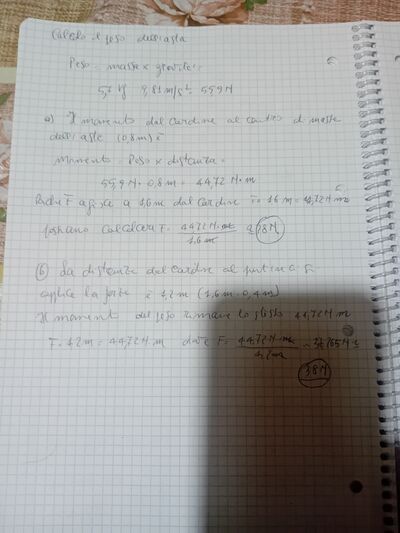 Calcolo il peso dell'asta
Peso = massa x gravità =
5,7 kg 9,81 m/s² = 55,9 N
a) Il momento dal cardine al centro di massa
dell'asta (0,8 m) è
Momento = Peso x distanza =
55,9 N · 0,8 m = 44,72 N · m
F agisce a 1,6 m dal cardine F · 1,6 m = 44,72 N · m
possiamo calcolare F = 44,72 N · m / 1,6 m ≈ 28 N
b) La distanza dal cardine al punto in cui si
applica la forza è 1,2 m (1,6 m - 0,4 m)
Il momento del peso rimane lo stesso 44,72 N · m
F · 1,2 m = 44,72 N · m F = 44,72 N · m / 1,2 m ≈
38 N